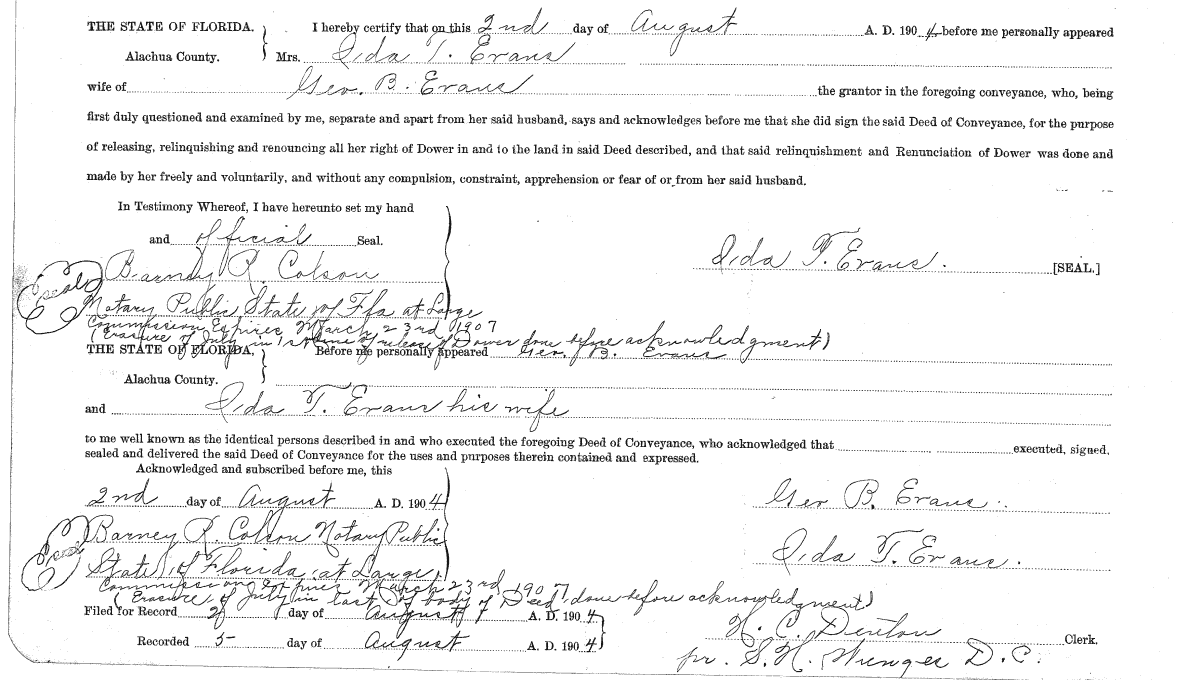 THE STATE OF FLORIDA. } I hereby certify that on this 2nd day of August A. D. 1904 before me personally appeared
Alachua County. Mrs. Ida T. Evans
wife of Geo. B. Evans the grantor in the foregoing conveyance, who, being
first duly questioned and examined by me, separate and apart from her said husband, says and acknowledges before me that she did sign the said Deed of Conveyance, for the purpose
of releasing, relinquishing and renouncing all her right of Dower in and to the land in said Deed described, and that said relinquishment and Renunciation of Dower was done and
made by her freely and voluntarily, and without any compulsion, constraint, apprehension or fear of or from her said husband.
In Testimony Whereof, I have hereunto set my hand
and official Seal.
Ida T. Evans. [SEAL.]
(Seal) Barney R. Colson
Notary Public State of Fla at Large
Commission Expires March 23rd 1907
(Erasure of July in 1st line of release of Dower done before acknowledgment)
THE STATE OF FLORIDA, } Before me personally appeared Geo. B. Evans
Alachua County.
and Ida T. Evans his wife
to me well known as the identical persons described in and who executed the foregoing Deed of Conveyance, who acknowledged that executed, signed.
sealed and delivered the said Deed of Conveyance for the uses and purposes therein contained and expressed.
Acknowledged and subscribed before me, this
2nd day of August A. D. 1904
Geo B. Evans.
(Seal) Barney R. Colson Notary Public
State of Florida at Large
Ida T. Evans.
Commission Expires March 23rd 1907
(Erasure of July in last of body of Deed done before acknowledgment)
Filed for Record 2 day of August A. D. 1904
H. C. Denton Clerk.
Recorded 5 day of August A. D. 1904
pr. S. H. Wienges D. C.